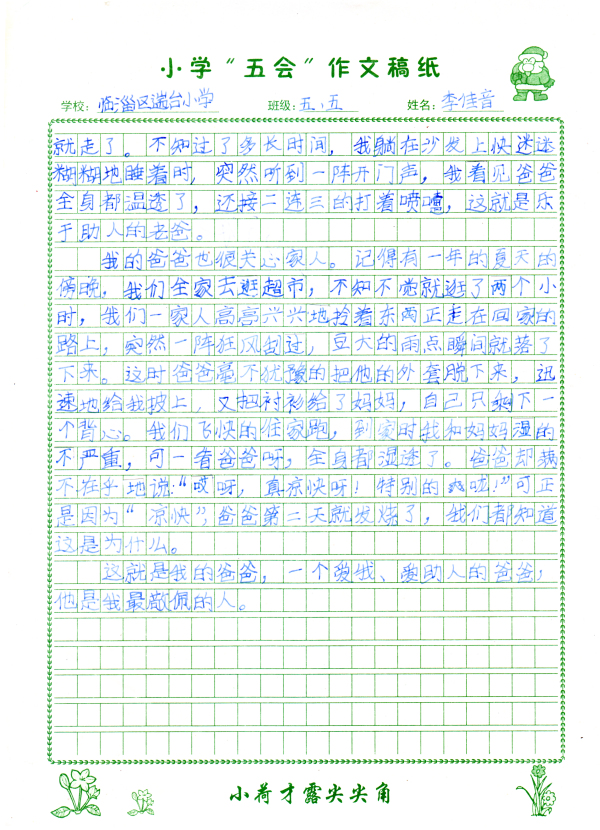 小学“五会”作文稿纸
学校：临淄区遄台小学 班级：五、五 姓名：李佳音
就走了。不知过了多长时间，我躺在沙发上快迷迷
糊糊地睡着时，突然听到一阵开门声，我看见爸爸
全身都湿透了，还接二连三的打着喷嚏，这就是乐
于助人的老爸。
我的爸爸也很关心家人。记得有一年的夏天的
傍晚，我们全家去逛超市，不知不觉就逛了两个小
时，我们一家人高高兴兴地拎着东西正走在回家的
路上，突然一阵狂风刮过，豆大的雨点瞬间就落了
下来。这时爸爸毫不犹豫的把他的外套脱下来，迅
速地给我披上，又把衬衫给了妈妈，自己只剩下一
个背心。我们飞快的往家跑，到家时我和妈妈湿的
不严重，可一看爸爸呀，全身都湿透了。爸爸却满
不在乎地说：“哎呀，真凉快呀！特别的爽哒！”可正
是因为“凉快”，爸爸第二天就发烧了，我们都知道
这是为什么。
这就是我的爸爸，一个爱我、爱助人的爸爸，
他是我最敬佩的人。
小荷才露尖尖角